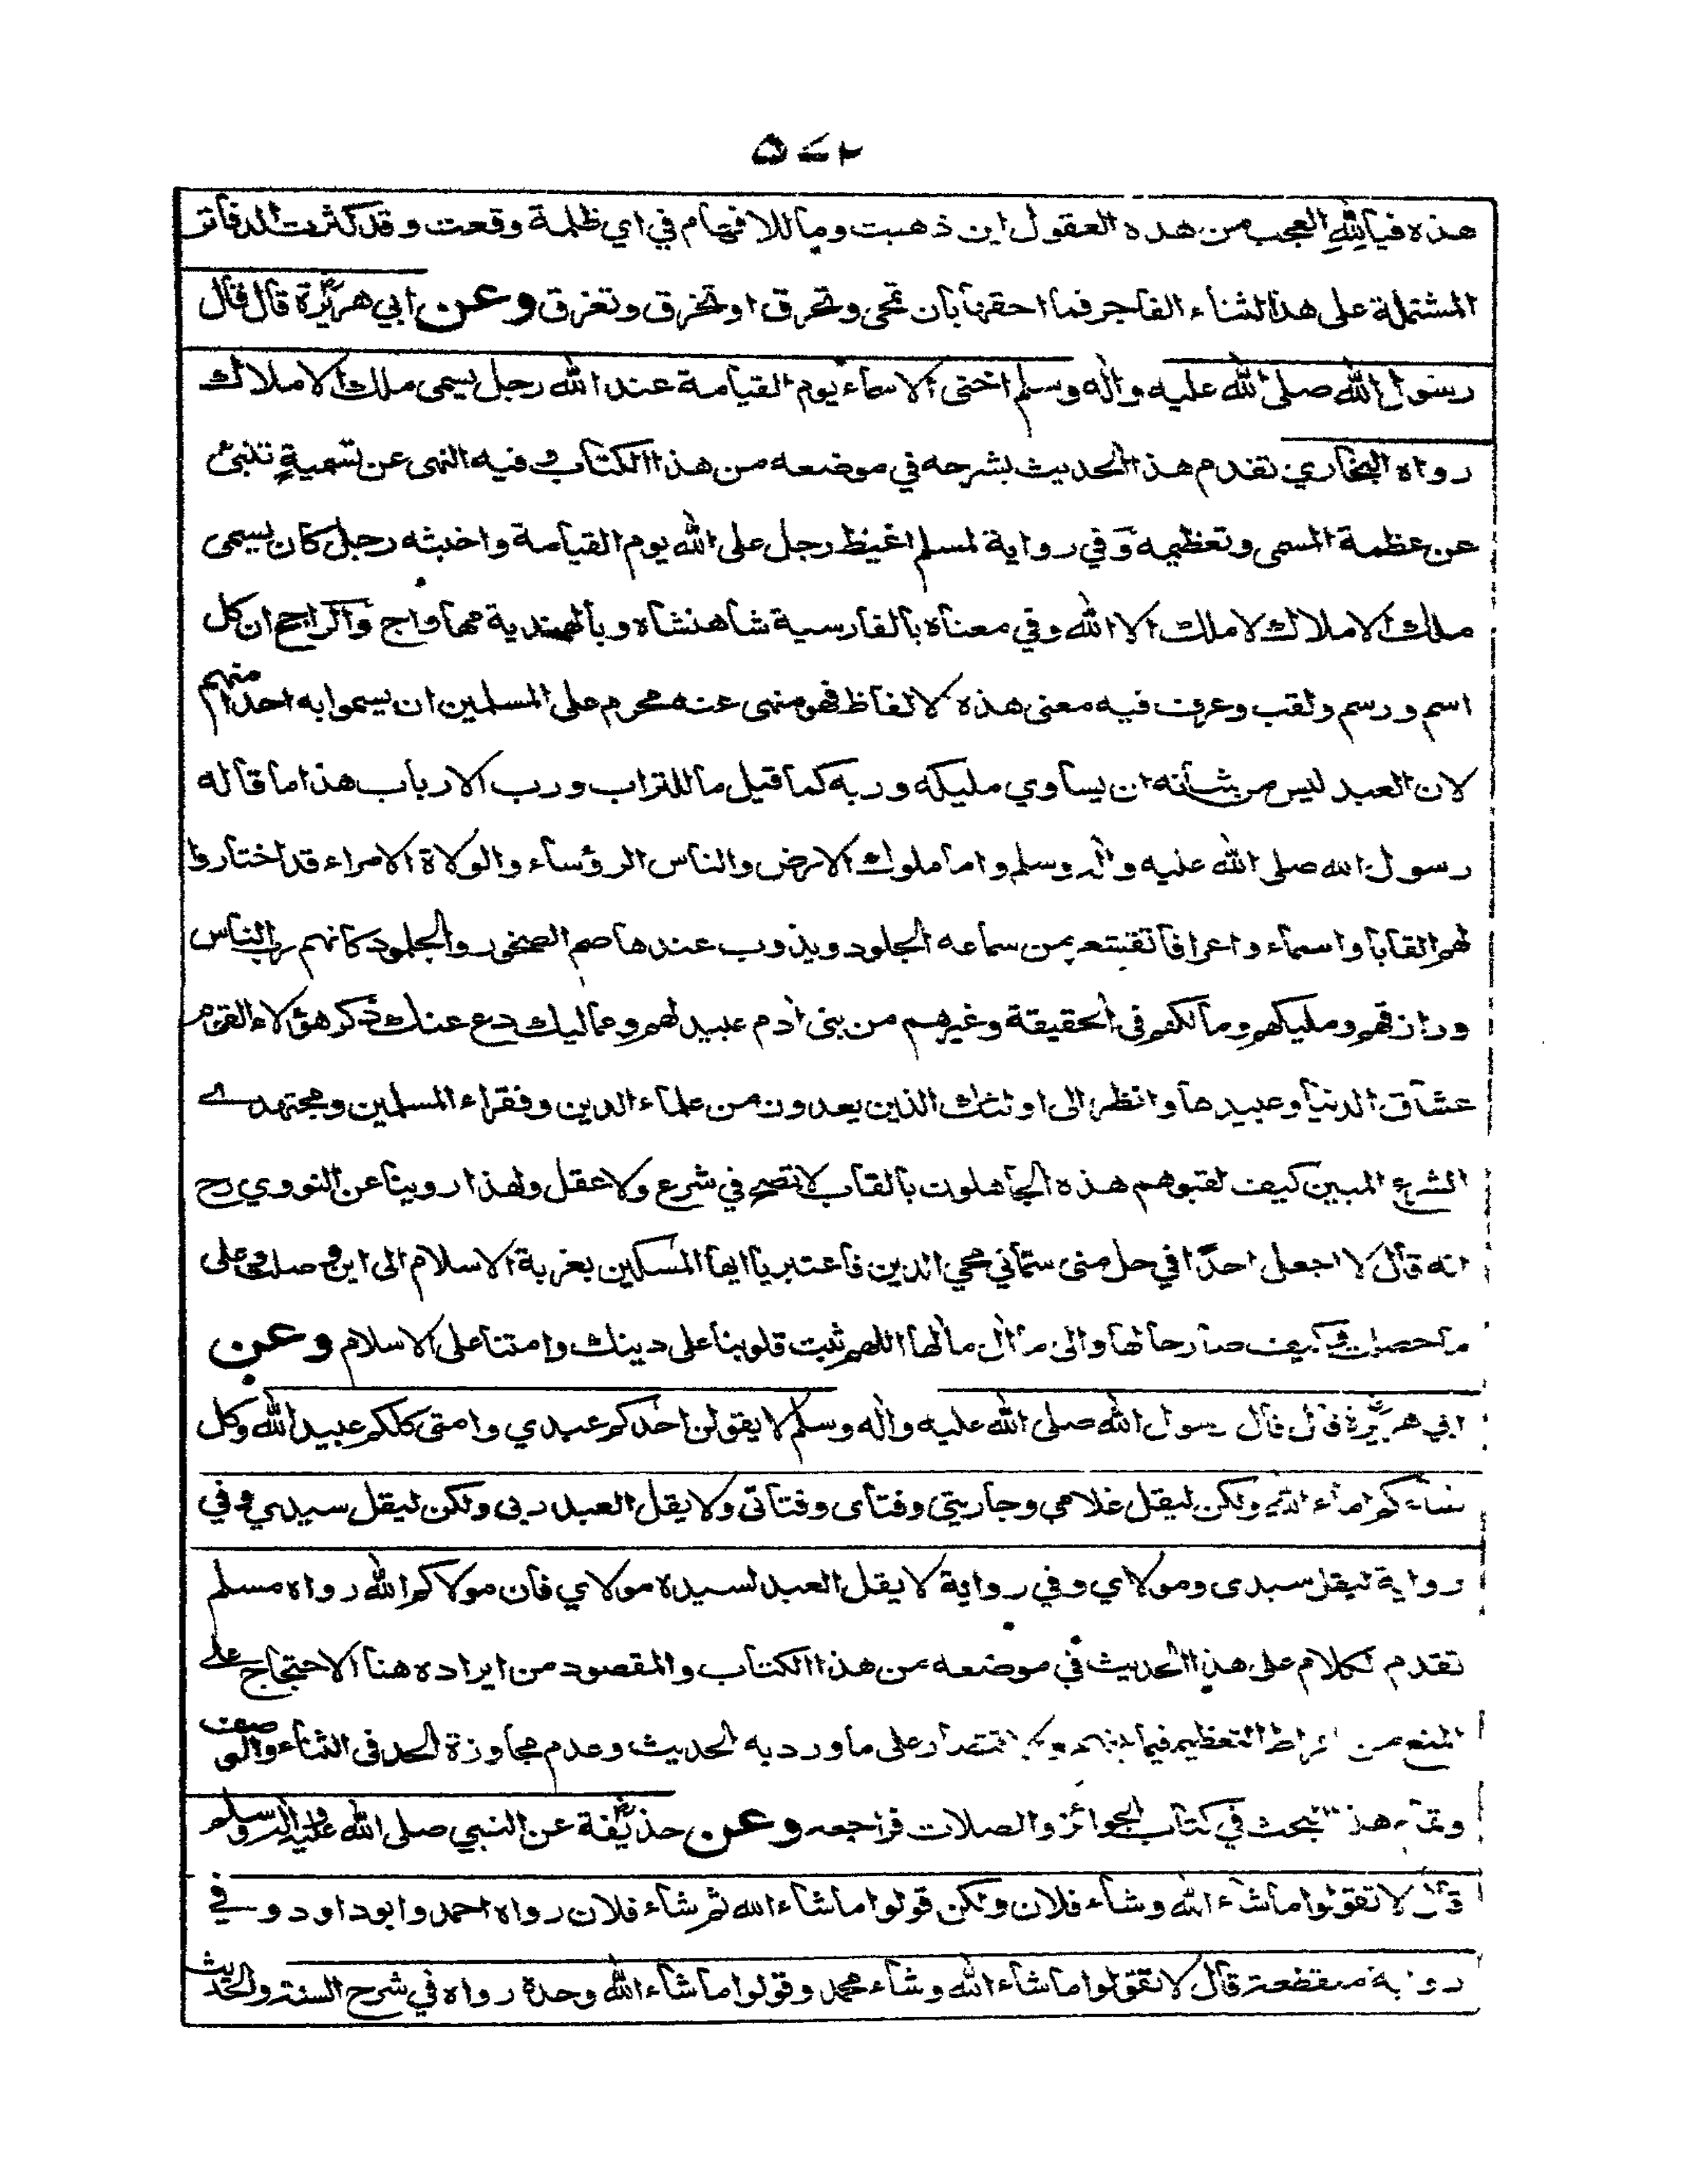 ٥٧٢
هذه فيا لله العجب من هذه العقول اين ذهبت وما للافهام في اي ظلمة وقعت وقد كثرت الدفاتر
المشتملة على هذا الثناء الفاجر فما احقها بان تمحى وتحرق او تخرق وتغرق وعن ابي هريرة قال قال
رسول الله صلى الله عليه واله وسلم اخنى الاسماء يوم القيامة عند الله رجل يسمى ملك الاملاك
رواه البخاري تقدم هذا الحديث بشرحه في موضعه من هذا الكتاب وفيه النهى عن تسمية تنبئ
عن عظمة المسمى وتعظيمه وفي رواية لمسلم اغيظ رجل على الله يوم القيامة واخبثه رجل كان يسمى
ملك الاملاك لا ملك الا الله وفي معناه بالفارسية شاهنشاه وبالهندية مهاراج والراجح ان كل
اسم ورسم ولقب وعرف فيه معنى هذه الالفاظ فهو منهى عنه محرم على المسلمين ان يسموا به احدا منهم
لان العبد ليس من شانه ان يساوي مليكه وربه كما قيل ما للتراب ورب الارباب هذا ما قاله
رسول الله صلى الله عليه واله وسلم واما ملوك الارض والناس الرؤساء والولاة الامراء قد اختاروا
لهم القابا واسماء واعرافا تقشعر من سماعه الجلود ويذوب عندها صم الصخور والجلمود كانهم رب الناس
ورازقهم ومليكهم ومالكهم في الحقيقة وغيرهم من بنى ادم عبيد لهم ومماليك دع عنك ذكر هؤلاء القوم
عشاق الدنيا وعبيدها وانظر الى اولئك الذين يعدون من علماء الدين وفقراء المسلمين ومجتهدے
الشرع المبين كيف لقبوهم هذه الجاهلون بالقاب لا تصح في شرع ولا عقل ولهذا روينا عن النووي رح
انه قال لا اجعل احدا في حل منى سماني محي الدين فاعتبر يا ايها المسكين بغربة الاسلام الى اين وصلت وعلى
ما حصلت وكيف صار حالها والى م ال مالها اللهم ثبت قلوبنا على دينك وامتنا على الاسلام وعن
ابي هريرة قال قال رسول الله صلى الله عليه واله وسلم لا يقولن احدكم عبدي وامتى كلكم عبيد الله وكل
نساءكم اماء الله ولكن ليقل غلامي وجاريتي وفتاى وفتاتى ولا يقل العبد ربى ولكن ليقل سيدي وفي
رواية ليقل سيدى ومولاي وفي رواية لا يقل العبد لسيده مولاي فان مولاكم الله رواه مسلم
تقدم الكلام على هذا الحديث في موضعه من هذا الكتاب والمقصود من ايراده هنا الاحتجاج على
المنع من افراط التعظيم فيما بينهم والاقتصار على ما ورد به الحديث وعدم مجاوزة الحد فى الثناء والوصف
وتمام هذا البحث في كتاب الجوائز والصلات فراجعه وعن حذيفة عن النبي صلى الله عليه واله وسلم
قال لا تقولوا ما شاء الله وشاء فلان ولكن قولوا ما شاء الله ثم شاء فلان رواه احمد وابو داود وفي
رواية منقطعة قال لا تقولوا ما شاء الله وشاء محمد وقولوا ما شاء الله وحده رواه في شرح السنة والحديث